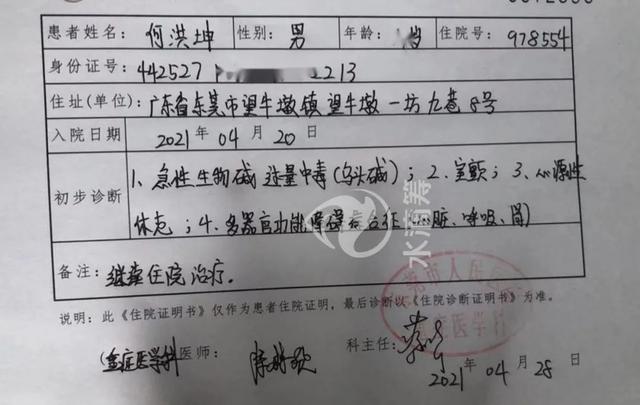 患者姓名: 何洪坤 性别: 男 年龄: 岁 住院号: 978554
身份证号: 442527 2213
住址(单位): 广东省东莞市望牛墩镇望牛墩一坊九巷8号
入院日期 2021年04月20日
初步诊断 1、急性生物碱过量中毒(乌头碱); 2、室颤; 3、心源性
休克; 4、多器官功能障碍综合征(心脏、呼吸、胃)
备注: 继续住院治疗.
水滴筹
说明: 此《住院证明书》仅作为患者住院证明, 最后诊断以《住院诊断证明书》为准。
莞市人民
重症医学科
(重症医学科) 医师: 科主任:
2021年04月28日